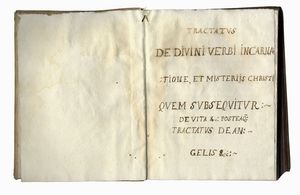 TRACTATVS
DE DIVINI VERBI INCARNA
TIONE, ET MISTERIJS CHRISTI
QVEM SVBSEQVITVR :~
DE VITA &.: POSTEAQ3
TRACTATVS DE AN: ~
GELIS &.:~